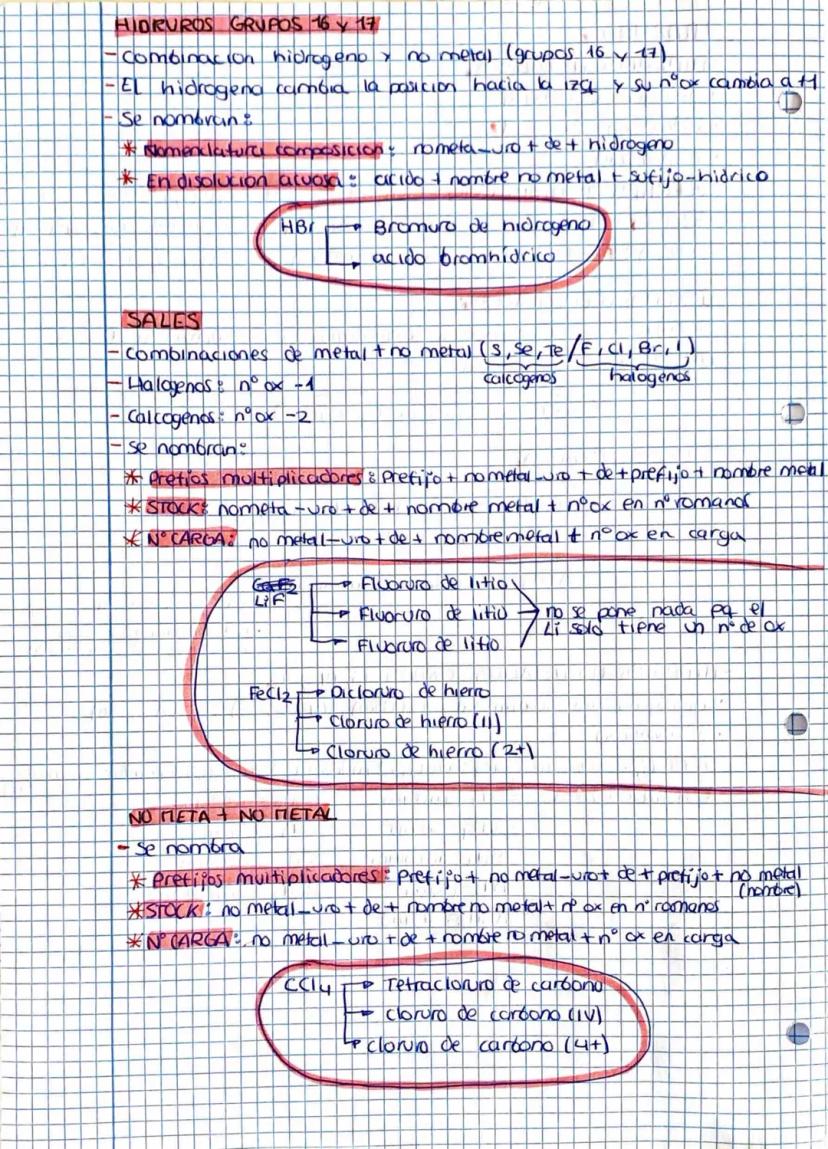 HIDRUROS GRUPOS 16 Y 17
- Combinacion hidrogeno y no metal (grupos 16 y 17)
- El hidrogeno cambia la posicion hacia la izq y su nº ox cambia a +1
- Se nombran:
* Nomenclatura composicion: nometa-uro + de + hidrogeno
* En disolucion acuosa: acido + nombre no metal + sufijo-hidrico
HBr → Bromuro de hidrogeno
→ acido bromhídrico
SALES
- Combinaciones de metal + no metal (S, Se, Te / F, Cl, Br, I)
calcogenos halogenos
- Halogenos: nº ox -1
- Calcogenos: nº ox -2
- se nombran:
* Prefios multiplicadores: Prefijo + no metal-uro + de + prefijo + nombre metal
* STOCK: nometa-uro + de + nombre metal + nº ox en nº romanos
* Nº CARGA: no metal-uro + de + nombre metal + nº ox en carga
LiF → Fluoruro de litio
→ Fluoruro de litio → no se pone nada pq el
Li solo tiene un nº de ox
→ Fluoruro de litio
FeCl2 → Dicloruro de hierro
→ Cloruro de hierro (II)
→ Cloruro de hierro (2+)
NO META + NO METAL
- Se nombra
* Prefijos multiplicadores: Prefijo + no metal-uro + de + prefijo + no metal
(nombre)
* STOCK: no metal-uro + de + nombre no metal + nº ox en nº romanos
* Nº CARGA: no metal-uro + de + nombre no metal + nº ox en carga
CCl4 → Tetracloruro de carbono
→ cloruro de carbono (IV)
→ cloruro de carbono (4+)